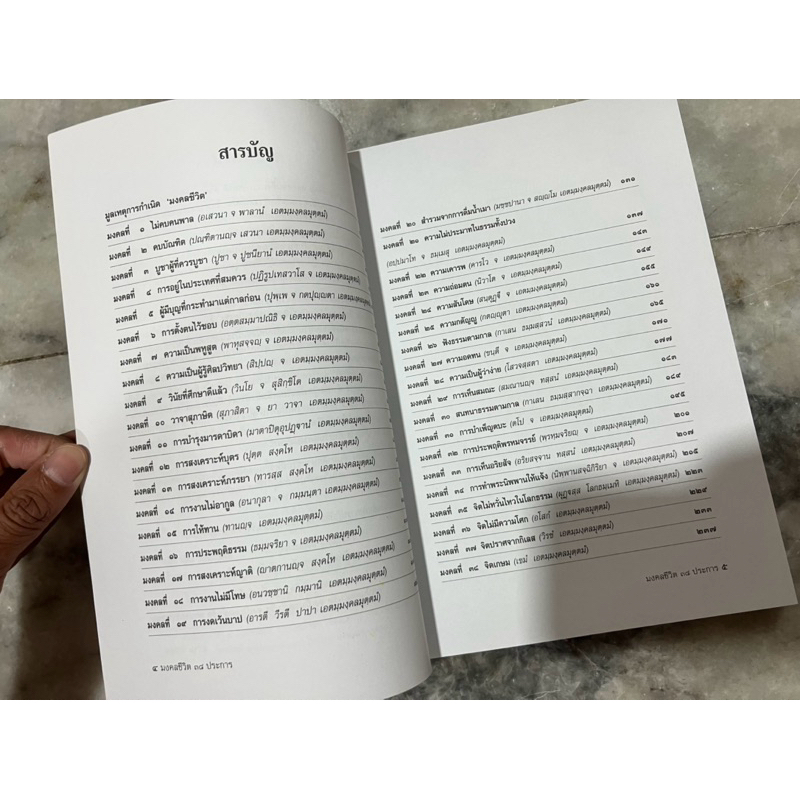 สารบัญ
มูลเหตุการกำเนิด 'มงคลชีวิต'
มงคลที่ ๑ ไม่คบคนพาล (อเสวนา จ พาลานํ เอตมฺมงฺคลมุตฺตมํ)
มงคลที่ ๒ คบบัณฑิต (ปณฺฑิตานญฺจ เสวนา เอตมฺมงฺคลมุตฺตมํ)
มงคลที่ ๓ บูชาผู้ที่ควรบูชา (ปูชา จ ปูชนียานํ เอตมฺมงฺคลมุตฺตมํ)
มงคลที่ ๔ การอยู่ในประเทศที่สมควร (ปฏิรูปเทสวาโส จ เอตมฺมงฺคลมุตฺตมํ)
มงคลที่ ๕ ผู้มีบุญที่กระทำมาแต่กาลก่อน (ปุพฺเพ จ กตปุญฺญตา เอตมฺมงฺคลมุตฺตมํ)
มงคลที่ ๖ การตั้งตนไว้ชอบ (อตฺตสมฺมาปณิธิ จ เอตมฺมงฺคลมุตฺตมํ)
มงคลที่ ๗ ความเป็นพหูสูต (พาหุสจฺจญฺ จ เอตมฺมงฺคลมุตฺตมํ)
มงคลที่ ๘ ความเป็นผู้รู้ศิลปวิทยา (สิปฺปญฺ จ เอตมฺมงฺคลมุตฺตมํ)
มงคลที่ ๙ วินัยที่ศึกษาดีแล้ว (วินโย จ สุสิกฺขิโต เอตมฺมงฺคลมุตฺตมํ)
มงคลที่ ๑๐ วาจาสุภาษิต (สุภาสิตา จ ยา วาจา เอตมฺมงฺคลมุตฺตมํ)
มงคลที่ ๑๑ การบำรุงมารดาบิดา (มาตาปิตุอุปฏฺฐานํ เอตมฺมงฺคลมุตฺตมํ)
มงคลที่ ๑๒ การสงเคราะห์บุตร (ปุตฺต สงฺคโห เอตมฺมงฺคลมุตฺตมํ)
มงคลที่ ๑๓ การสงเคราะห์ภรรยา (ทารสฺส สงฺคโห เอตมฺมงฺคลมุตฺตมํ)
มงคลที่ ๑๔ การงานไม่อากูล (อนากุลา จ กมฺมนฺตา เอตมฺมงฺคลมุตฺตมํ)
มงคลที่ ๑๕ การให้ทาน (ทานญฺจ เอตมฺมงฺคลมุตฺตมํ)
มงคลที่ ๑๖ การประพฤติธรรม (ธมฺมจริยา จ เอตมฺมงฺคลมุตฺตมํ)
มงคลที่ ๑๗ การสงเคราะห์ญาติ (ญาตกานญฺจ สงฺคโห เอตมฺมงฺคลมุตฺตมํ)
มงคลที่ ๑๘ การงานไม่มีโทษ (อนวชฺชานิ กมฺมานิ เอตมฺมงฺคลมุตฺตมํ)
มงคลที่ ๑๙ การงดเว้นบาป (อารตี วีรตี ปาปา เอตมฺมงฺคลมุตฺตมํ)
๔ มงคลชีวิต ๓๘ ประการ
มงคลที่ ๒๐ สำรวมจากการดื่มน้ำเมา (มชฺชปานา จ สญฺญโม เอตมฺมงฺคลมุตฺตมํ) ๑๓๑
มงคลที่ ๒๑ ความไม่ประมาทในธรรมทั้งปวง
(อปฺปมาโท จ ธมฺเมสุ เอตมฺมงฺคลมุตฺตมํ) ๑๓๗
มงคลที่ ๒๒ ความเคารพ (คารโว จ เอตมฺมงฺคลมุตฺตมํ) ๑๔๓
มงคลที่ ๒๓ ความถ่อมตน (นิวาโต จ เอตมฺมงฺคลมุตฺตมํ) ๑๔๙
มงคลที่ ๒๔ ความสันโดษ (สนฺตุฏฺฐี จ เอตมฺมงฺคลมุตฺตมํ) ๑๕๕
มงคลที่ ๒๕ ความกตัญญู (กตญฺญุตา เอตมฺมงฺคลมุตฺตมํ) ๑๖๑
มงคลที่ ๒๖ ฟังธรรมตามกาล (กาเลน ธมฺมสฺสวนํ เอตมฺมงฺคลมุตฺตมํ) ๑๖๕
มงคลที่ ๒๗ ความอดทน (ขนฺตี จ เอตมฺมงฺคลมุตฺตมํ) ๑๗๑
มงคลที่ ๒๘ ความเป็นผู้ว่าง่าย (โสวจสฺสตา เอตมฺมงฺคลมุตฺตมํ) ๑๗๗
มงคลที่ ๒๙ การเห็นสมณะ (สมณานญฺจ ทสฺสนํ เอตมฺมงฺคลมุตฺตมํ) ๑๘๓
มงคลที่ ๓๐ สนทนาธรรมตามกาล (กาเลน ธมฺมสฺสากจฺฉา เอตมฺมงฺคลมุตฺตมํ) ๑๘๙
มงคลที่ ๓๑ การบำเพ็ญตบะ (ตโป จ เอตมฺมงฺคลมุตฺตมํ) ๑๙๕
มงคลที่ ๓๒ การประพฤติพรหมจรรย์ (พฺรหฺมจริยญฺ จ เอตมฺมงฺคลมุตฺตมํ) ๒๐๑
มงคลที่ ๓๓ การเห็นอริยสัจ (อริยสจฺจาน ทสฺสนํ เอตมฺมงฺคลมุตฺตมํ) ๒๐๗
มงคลที่ ๓๔ การทำพระนิพพานให้แจ้ง (นิพฺพานสจฺฉิกิริยา จ เอตมฺมงฺคลมุตฺตมํ) ๒๑๕
มงคลที่ ๓๕ จิตไม่หวั่นไหวในโลกธรรม (ผุฏฺฐสฺส โลกธมฺเมหิ เอตมฺมงฺคลมุตฺตมํ) ๒๒๓
มงคลที่ ๓๖ จิตไม่มีความโศก (อโสกํ เอตมฺมงฺคลมุตฺตมํ) ๒๒๙
มงคลที่ ๓๗ จิตปราศจากกิเลส (วิรชํ เอตมฺมงฺคลมุตฺตมํ) ๒๓๓
มงคลที่ ๓๘ จิตเกษม (เขมํ เอตมฺมงฺคลมุตฺตมํ) ๒๓๗
มงคลชีวิต ๓๘ ประการ ๕